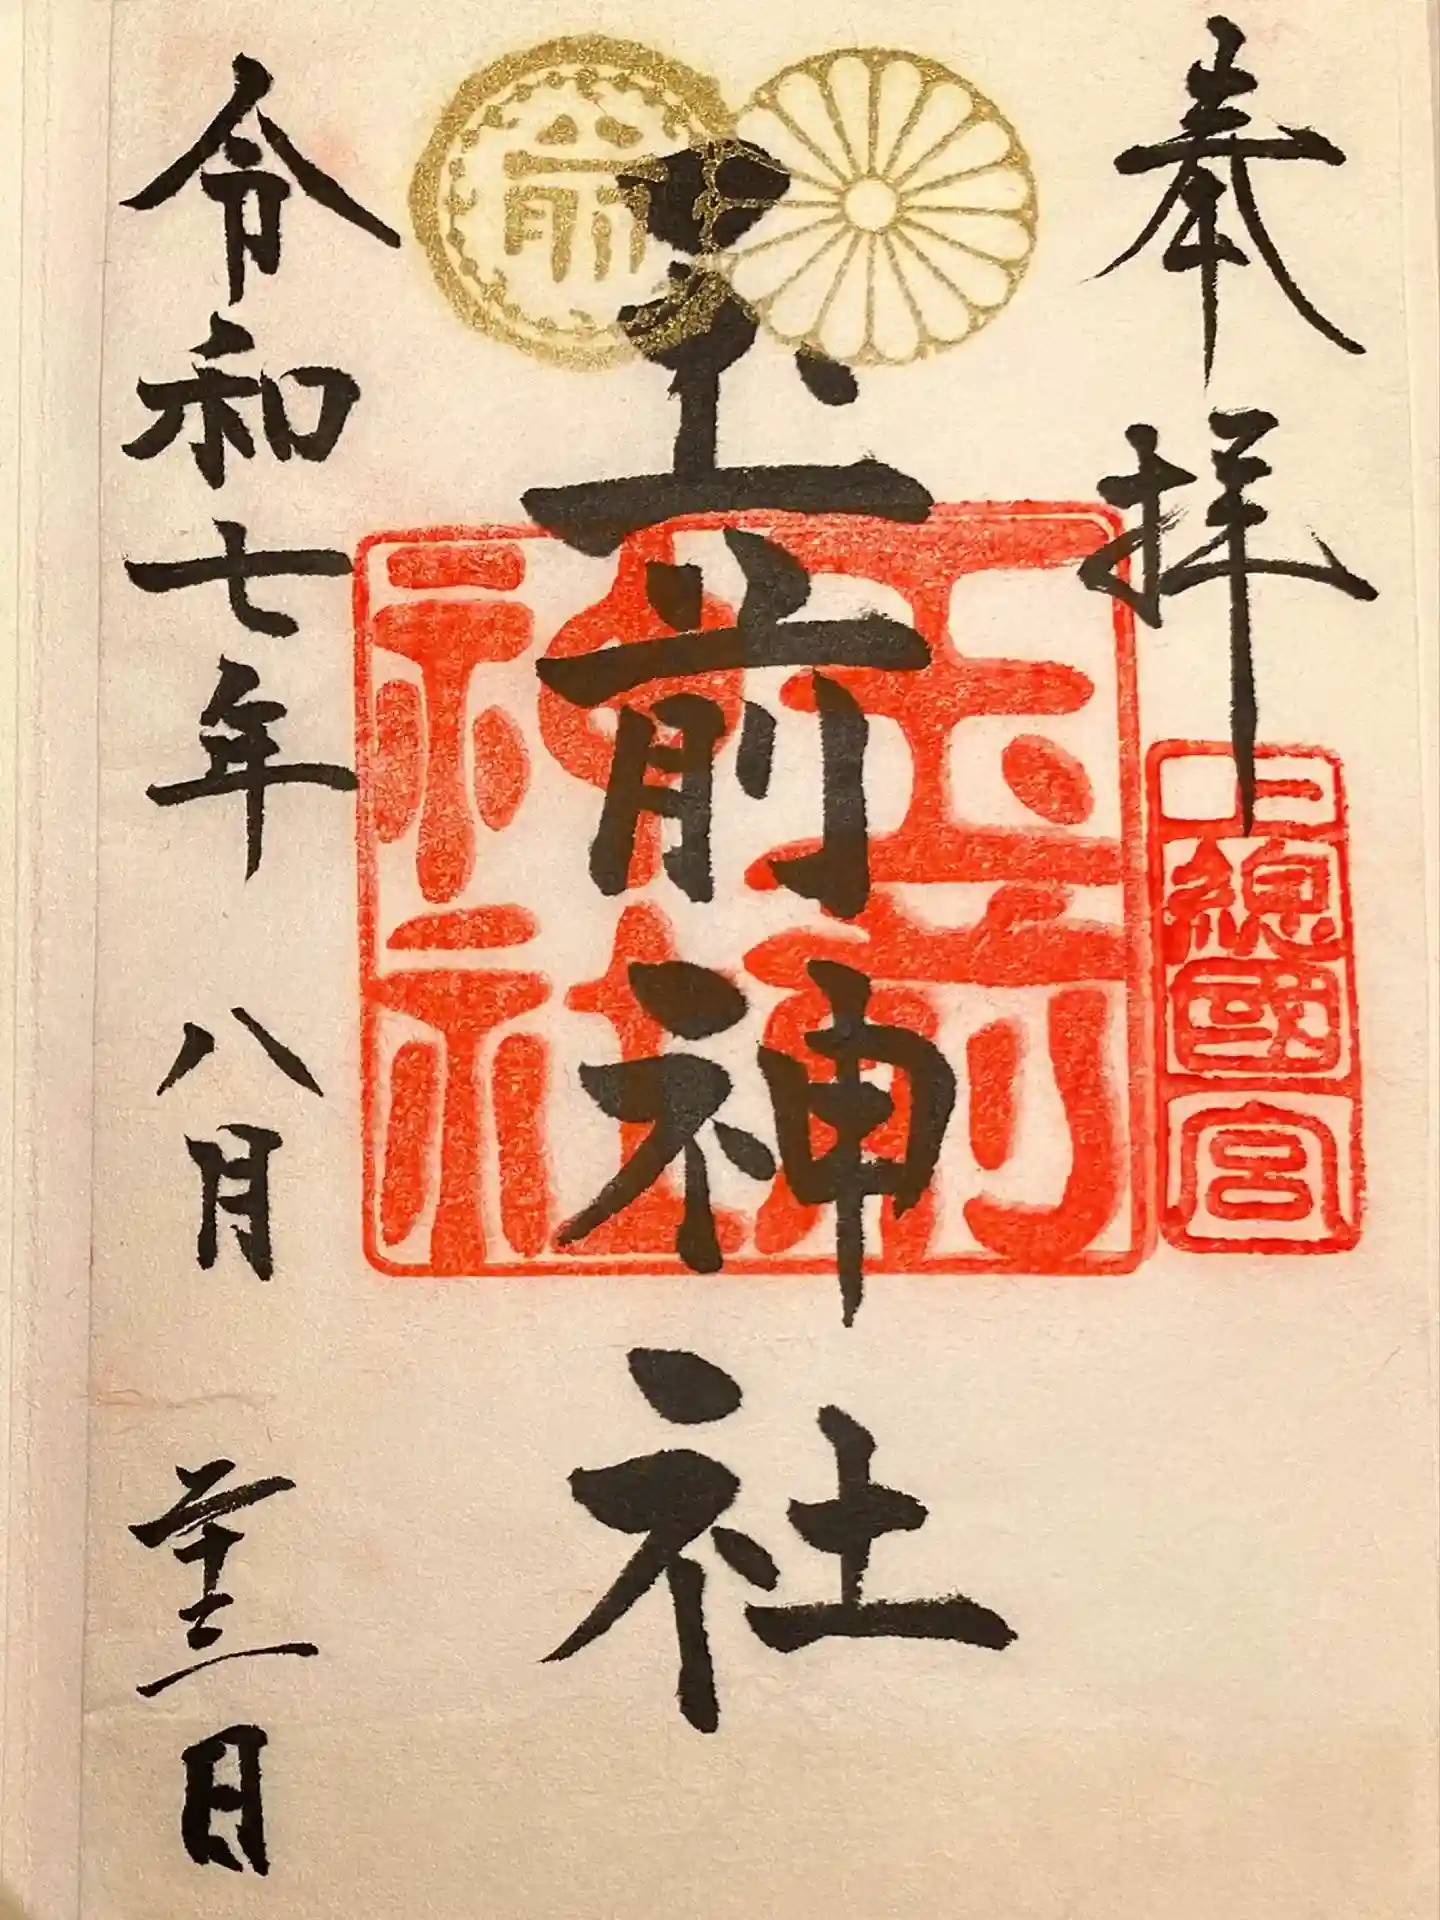 奉拝
上總國一宮
玉前神社
玉前神社
前
令和七年八月二十三日